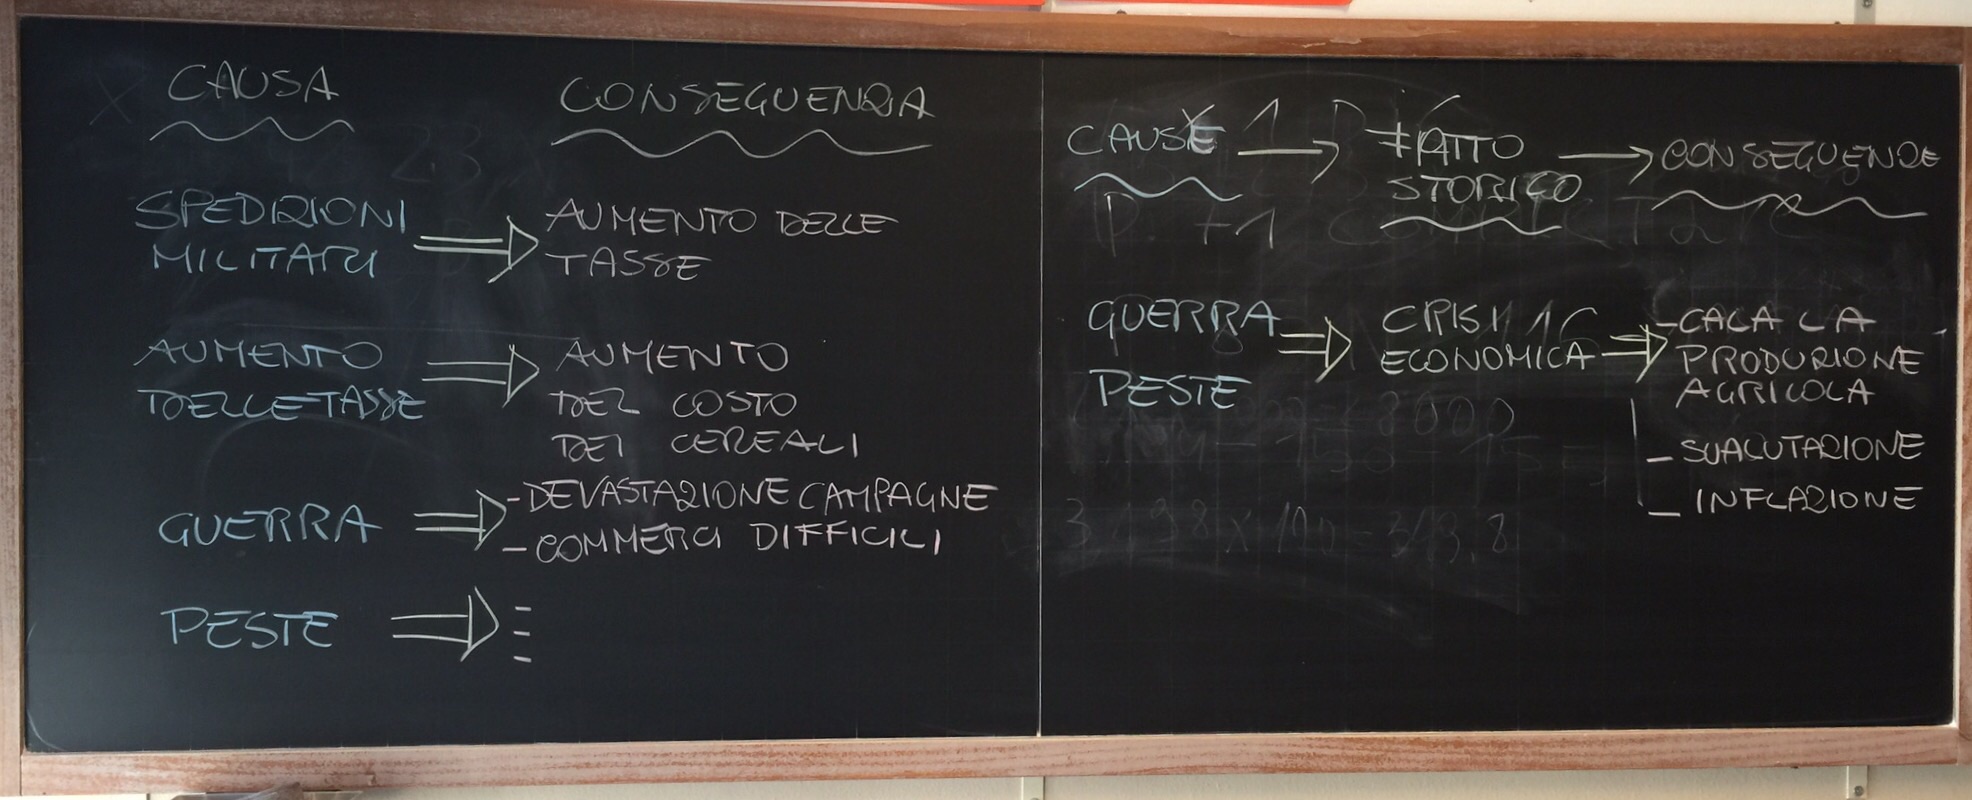 CAUSA
CONSEGUENZA
SPEDIZIONI
MILITARI
AUMENTO DELLE
TASSE
AUMENTO
DELLE TASSE
AUMENTO
DEL COSTO
DEI CEREALI
GUERRA
- DEVASTAZIONE CAMPAGNE
- COMMERCI DIFFICILI
PESTE
CAUSE
FATTO
STORICO
CONSEGUENZE
GUERRA
PESTE
CRISI
ECONOMICA
- CALA LA
PRODUZIONE
AGRICOLA
- SVALUTAZIONE
- INFLAZIONE